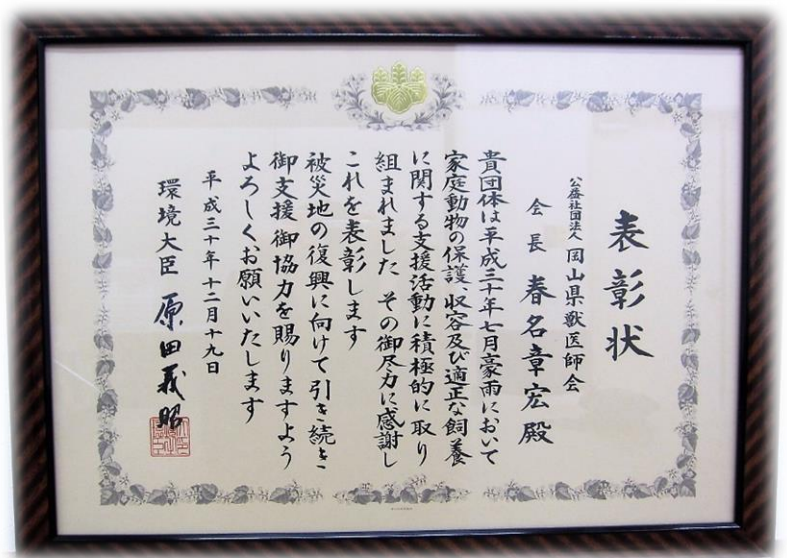 表彰状
公益社団法人 岡山県獣医師会
会長 春名章宏 殿
貴団体は平成三十年七月豪雨において
家庭動物の保護、収容及び適正な飼養
に関する支援活動に積極的に取り
組まれました その御尽力に感謝し
これを表彰します
被災地の復興に向けて引き続き
御支援 御協力を賜りますよう
よろしくお願いいたします
平成三十年十二月十九日
環境大臣 原田義昭